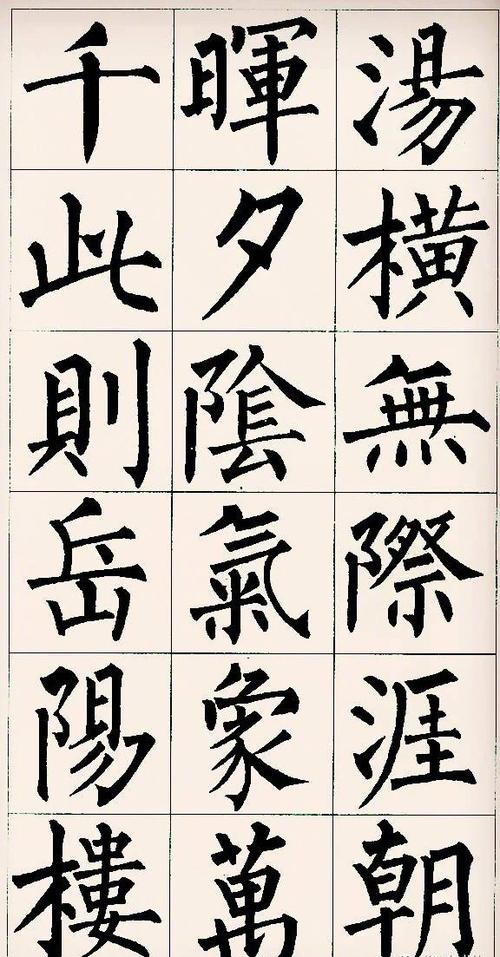 湯橫無際涯朝
暉夕陰氣象萬
千此則岳陽樓